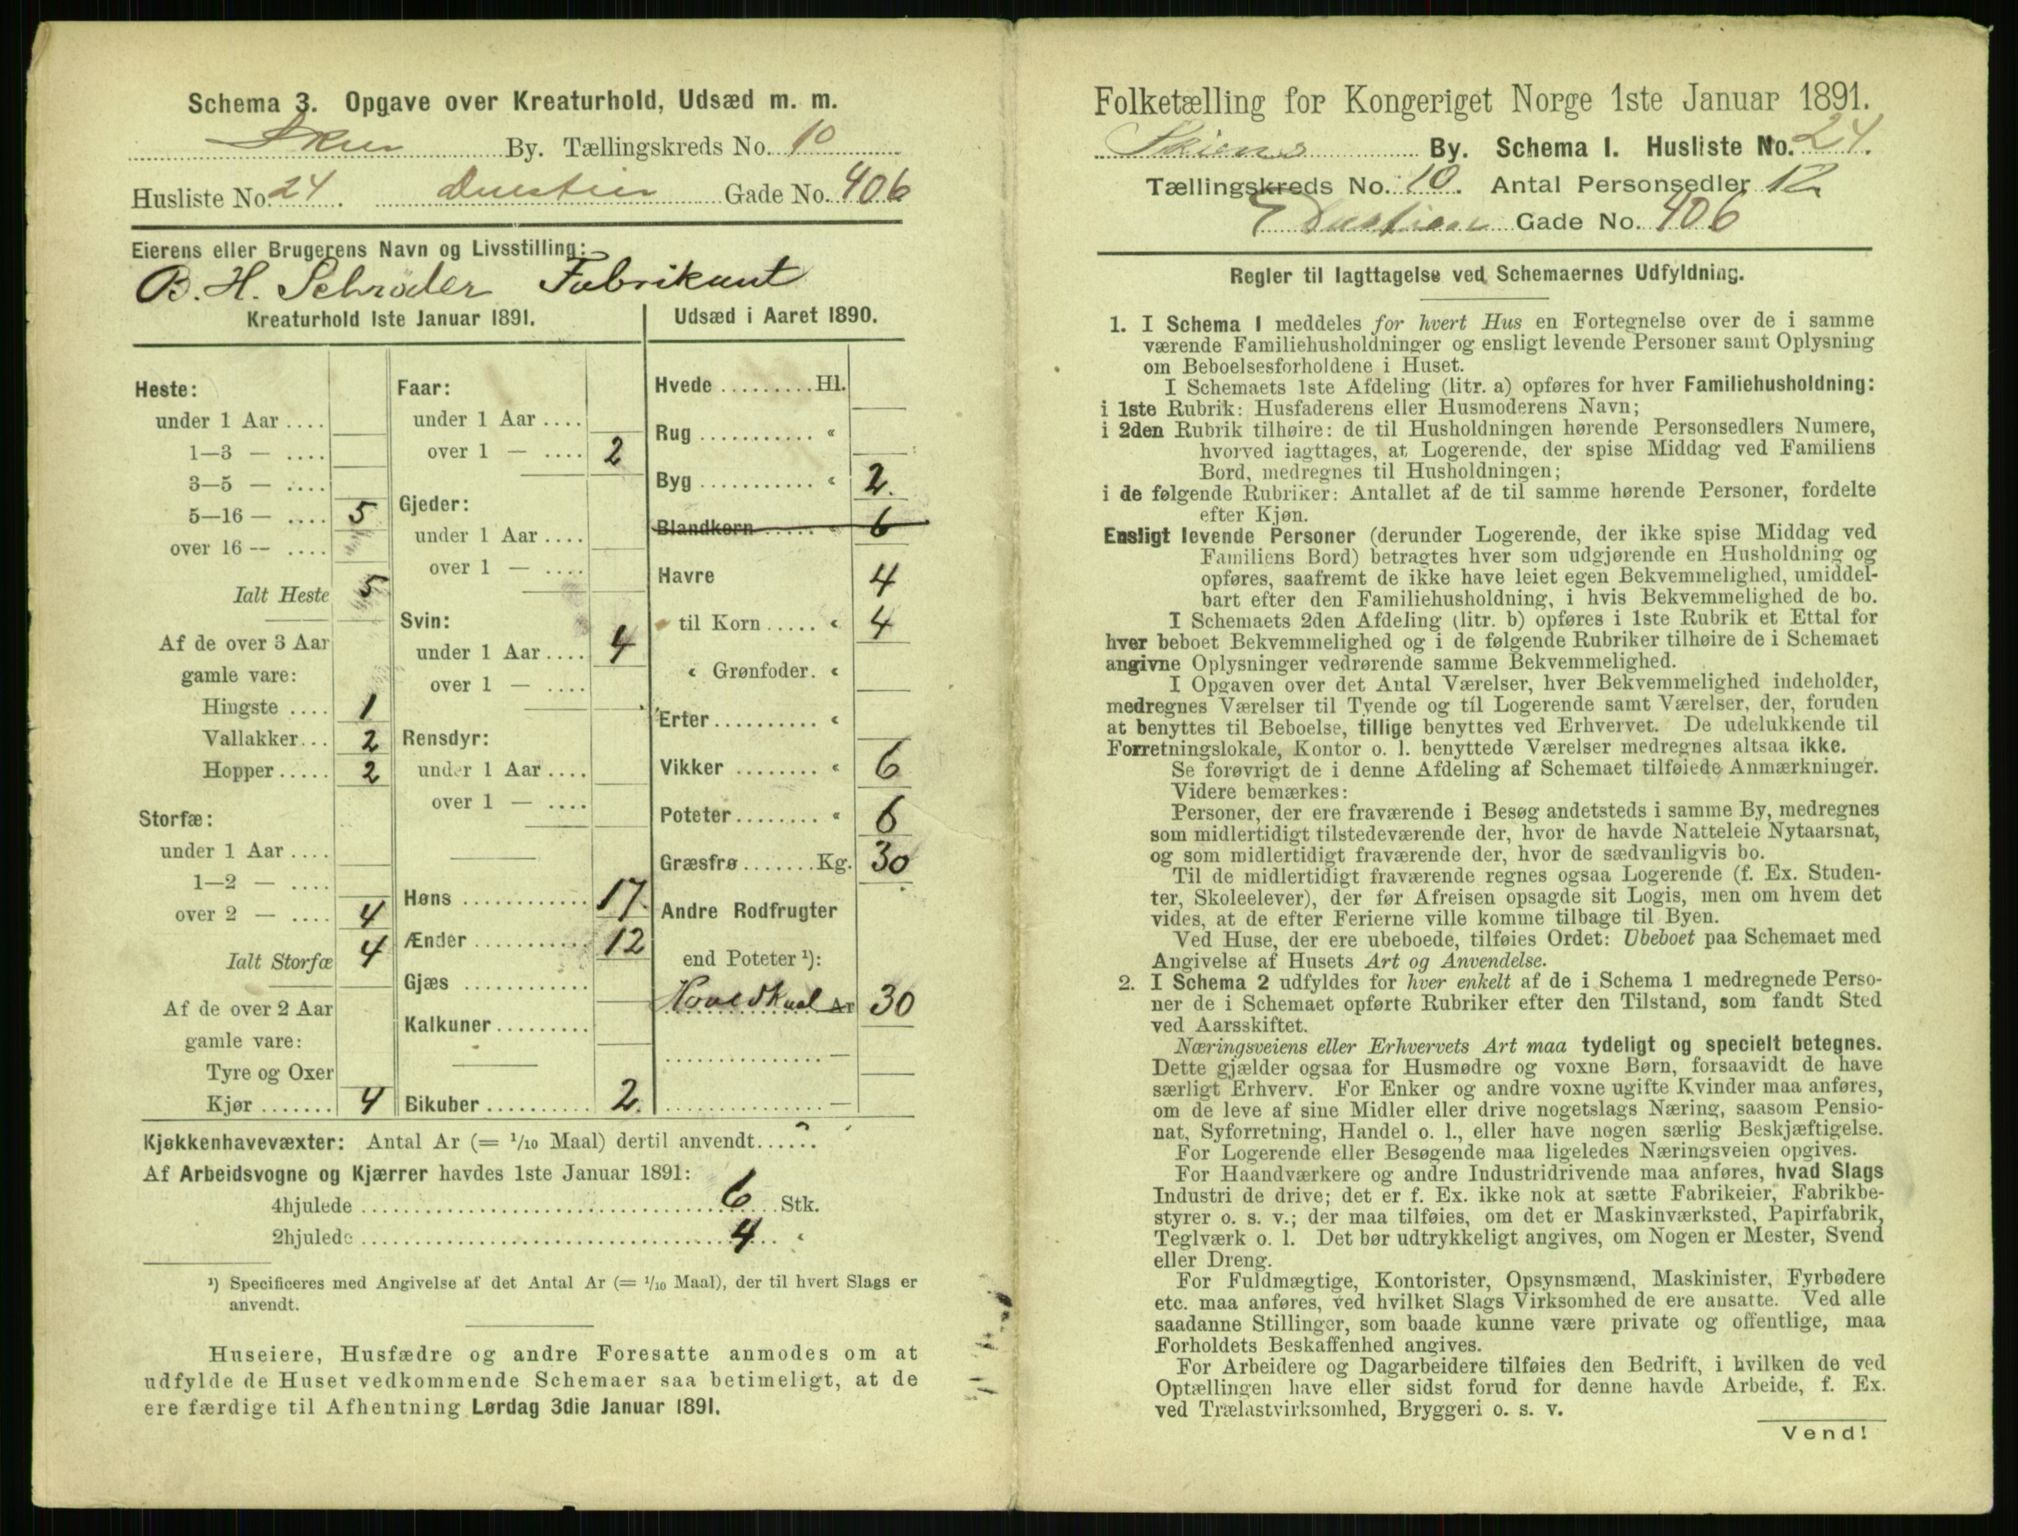 Schema 3. Opgave over Kreaturhold, Udsæd m. m.
Skien By. Tællingskreds No. 10
Husliste No. 24. Gade No. 406
Eierens eller Brugerens Navn og Livsstilling:
B. H. Schrøder Fabrikant
Kreaturhold 1ste Januar 1891.
Heste:
under 1 Aar ....
1—3 — ....
3—5 — ....
5—16 — .... 5
over 16 — ....
Ialt Heste 5
Af de over 3 Aar
gamle vare:
Hingste .... 1
Vallakker... 2
Hopper ..... 2
Storfæ:
under 1 Aar ....
1—2 — ....
over 2 — .... 4
Ialt Storfæ 4
Af de over 2 Aar
gamle vare:
Tyre og Oxer
Kjør ....... 4
Faar:
under 1 Aar ....
over 1 — .... 2
Gjeder:
under 1 Aar ....
over 1 — ....
Svin:
under 1 Aar .... 4
over 1 — ....
Rensdyr:
under 1 Aar ....
over 1 — ....
Høns ............ 17.
Ænder ........... 12
Gjæs ............
Kalkuner .........
Bikuber .......... 2.
Udsæd i Aaret 1890.
Hvede ......... Hl.
Rug ........... «
Byg ........... « 2.
Blandkorn ..... « 6
Havre 4
til Korn ..... « 4
« Grønfoder. «
Erter .......... «
Vikker ........ « 6
Poteter ........ « 6
Græsfrø ....... Kg. 30
Andre Rodfrugter
end Poteter ¹):
Ar 30
............... —
............... —
Kjøkkenhavevæxter: Antal Ar (= 1/10 Maal) dertil anvendt......
Af Arbeidsvogne og Kjærrer havdes 1ste Januar 1891:
4hjulede ........ 6 Stk.
2hjulede ........ 4 «
¹) Specificeres med Angivelse af det Antal Ar (= 1/10 Maal), der til hvert Slags er
anvendt.
Huseiere, Husfædre og andre Foresatte anmodes om at
udfylde de Huset vedkommende Schemaer saa betimeligt, at de
ere færdige til Afhentning Lørdag 3die Januar 1891.
Folketælling for Kongeriget Norge 1ste Januar 1891.
Skiens By. Schema I. Husliste No. 24.
Tællingskreds No. 10. Antal Personsedler 12
Gade No. 406
Regler til Iagttagelse ved Schemaernes Udfyldning.
1. I Schema 1 meddeles for hvert Hus en Fortegnelse over de i samme
værende Familiehusholdninger og ensligt levende Personer samt Oplysning
om Beboelsesforholdene i Huset.
I Schemaets 1ste Afdeling (litr. a) opføres for hver Familiehusholdning:
i 1ste Rubrik: Husfaderens eller Husmoderens Navn;
i 2den Rubrik tilhøire: de til Husholdningen hørende Personsedlers Numere,
hvorved iagttages, at Logerende, der spise Middag ved Familiens
Bord, medregnes til Husholdningen;
i de følgende Rubriker: Antallet af de til samme hørende Personer, fordelte
efter Kjøn.
Ensligt levende Personer (derunder Logerende, der ikke spise Middag ved
Familiens Bord) betragtes hver som udgjørende en Husholdning og
opføres, saafremt de ikke have leiet egen Bekvemmelighed, umiddel-
bart efter den Familiehusholdning, i hvis Bekvemmelighed de bo.
I Schemaets 2den Afdeling (litr. b) opføres i 1ste Rubrik et Ettal for
hver beboet Bekvemmelighed og i de følgende Rubriker tilhøire de i Schemaet
angivne Oplysninger vedrørende samme Bekvemmelighed.
I Opgaven over det Antal Værelser, hver Bekvemmelighed indeholder,
medregnes Værelser til Tyende og til Logerende samt Værelser, der, foruden
at benyttes til Beboelse, tillige benyttes ved Erhvervet. De udelukkende til
Forretningslokale, Kontor o. l. benyttede Værelser medregnes altsaa ikke.
Se forøvrigt de i denne Afdeling af Schemaet tilføiede Anmærkninger.
Videre bemærkes:
Personer, der ere fraværende i Besøg andetsteds i samme By, medregnes
som midlertidigt tilstedeværende der, hvor de havde Natteleie Nytaarsnat,
og som midlertidigt fraværende der, hvor de sædvanligvis bo.
Til de midlertidigt fraværende regnes ogsaa Logerende (f. Ex. Studen-
ter, Skoleelever), der før Afreisen opsagde sit Logis, men om hvem det
vides, at de efter Ferierne ville komme tilbage til Byen.
Ved Huse, der ere ubeboede, tilføies Ordet: Ubeboet paa Schemaet med
Angivelse af Husets Art og Anvendelse.
2. I Schema 2 udfyldes for hver enkelt af de i Schema 1 medregnede Perso-
ner de i Schemaet opførte Rubriker efter den Tilstand, som fandt Sted
ved Aarsskiftet.
Næringsveiens eller Erhvervets Art maa tydeligt og specielt betegnes.
Dette gjælder ogsaa for Husmødre og voxne Børn, forsaavidt de have
særligt Erhverv. For Enker og andre voxne ugifte Kvinder maa anføres,
om de leve af sine Midler eller drive nogetslags Næring, saasom Pensio-
nat, Syforretning, Handel o. l., eller have nogen særlig Beskjæftigelse.
For Logerende eller Besøgende maa ligeledes Næringsveien opgives.
For Haandværkere og andre Industridrivende maa anføres, hvad Slags
Industri de drive; det er f. Ex. ikke nok at sætte Fabrikeier, Fabrikbe-
styrer o. s. v.; der maa tilføies, om det er Maskinværksted, Papirfabrik,
Teglværk o. l. Det bør udtrykkeligt angives, om Nogen er Mester, Svend
eller Dreng.
For Fuldmægtige, Kontorister, Opsynsmænd, Maskinister, Fyrbødere
etc. maa anføres, ved hvilket Slags Virksomhed de ere ansatte. Ved alle
saadanne Stillinger, som baade kunne være private og offentlige, maa
Forholdets Beskaffenhed angives.
For Arbeidere og Dagarbeidere tilføies den Bedrift, i hvilken de ved
Optællingen have eller sidst forud for denne havde Arbeide, f. Ex.
ved Trælastvirksomhed, Bryggeri o. s. v.
Vend!